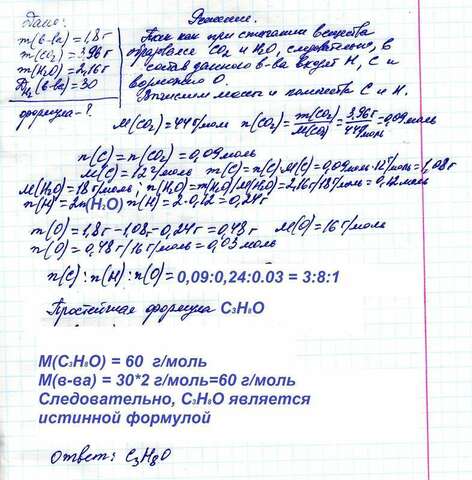 Дано:
m(в-ва) = 1,8 г
m(CO₂) = 3,96 г
m(H₂O) = 2,16 г
D_H₂(в-ва) = 30
формула - ?
Решение.
Так как при сгорании вещества
образовался CO₂ и H₂O, следовательно, в
состав данного в-ва входят H, C и
возможно O.
Вычислим массы и количества C и H.
M(CO₂) = 44 г/моль n(CO₂) = m(CO₂)/M(CO₂) = 3,96 г/44 г/моль = 0,09 моль
n(C) = n(CO₂) = 0,09 моль
M(C) = 12 г/моль m(C) = n(C)·M(C) = 0,09 моль·12 г/моль = 1,08 г
M(H₂O) = 18 г/моль; n(H₂O) = m(H₂O)/M(H₂O) = 2,16 г/18 г/моль = 0,12 моль
n(H) = 2n(H₂O) n(H) = 2·0,12 = 0,24 г
m(O) = 1,8 г - 1,08 г - 0,24 г = 0,48 г M(O) = 16 г/моль
n(O) = 0,48 г/16 г/моль = 0,03 моль
n(C) : n(H) : n(O) = 0,09:0,24:0.03 = 3:8:1
Простейшая формула C₃H₈O
M(C₃H₈O) = 60 г/моль
M(в-ва) = 30*2 г/моль=60 г/моль
Следовательно, C₃H₈O является
истинной формулой
Ответ: C₃H₈O